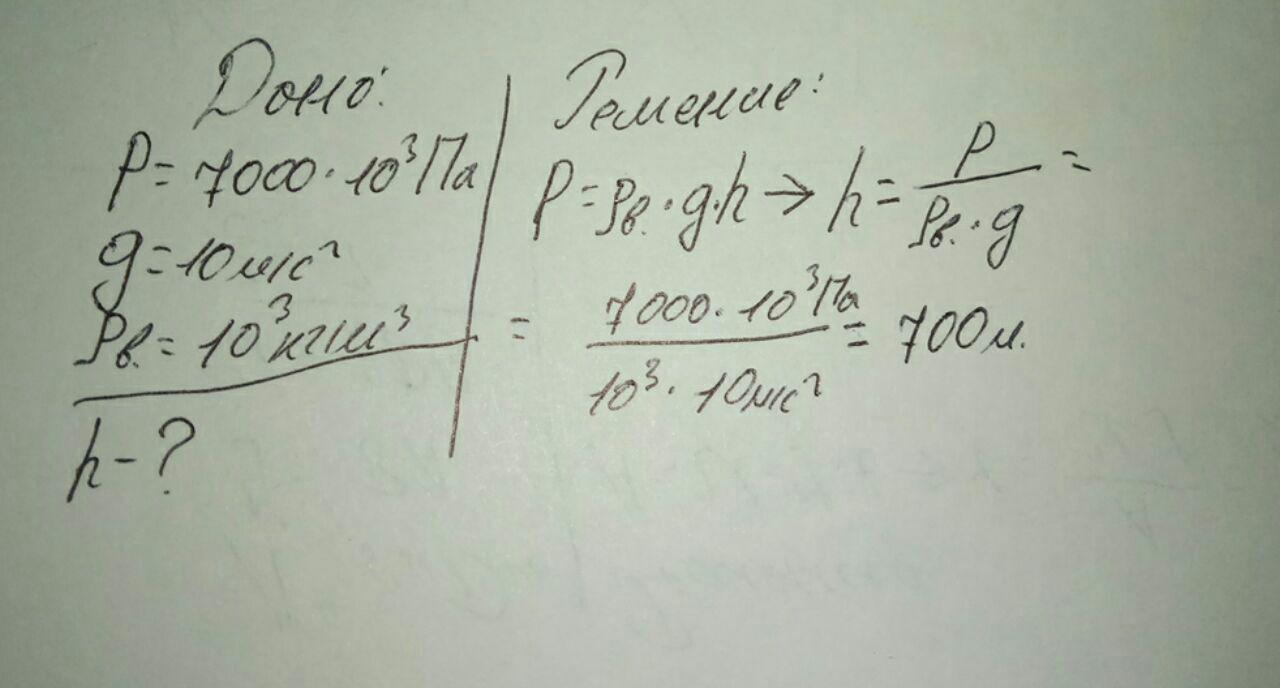 Дано:
P = 7000 · 10³ Па
g = 10 м/с²
ρв. = 10³ кг/м³
h - ?
Решение:
P = ρв. · g · h → h = P / ρв. · g =
= 7000 · 10³ Па / 10³ · 10 м/с² = 700 м.